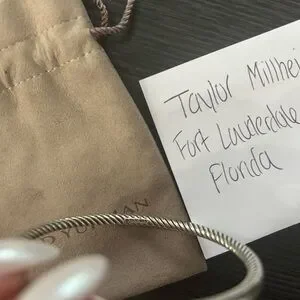 Taylor Millhei
Fort Lauderdale
Florida